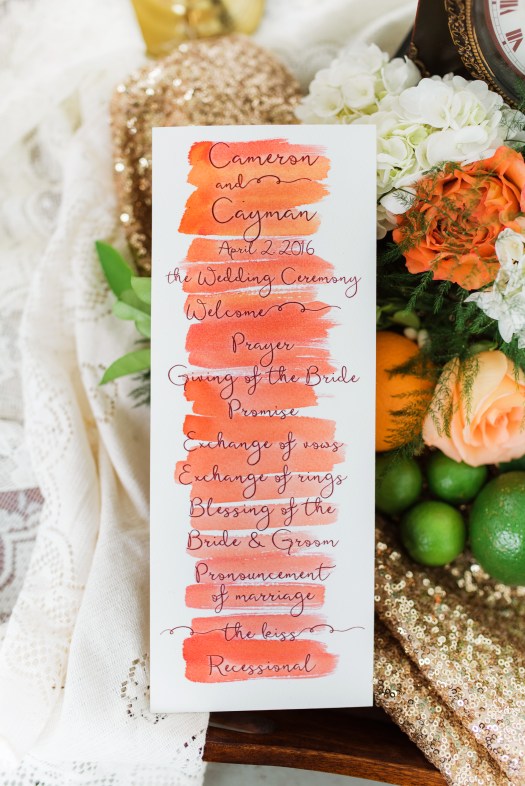 Cameron
and
Cayman
April 2, 2016
the Wedding Ceremony
Welcome
Prayer
Giving of the Bride
Promise
Exchange of vows
Exchange of rings
Blessing of the
Bride & Groom
Pronouncement
of marriage
the kiss
Recessional